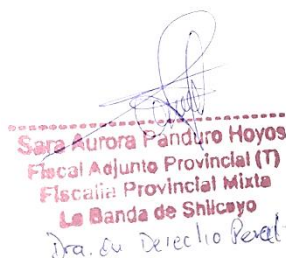 Sara Aurora Panduro Hoyos
Fiscal Adjunto Provincial (T)
Fiscalía Provincial Mixta
La Banda de Shilcayo
Dra. En Derecho Penal